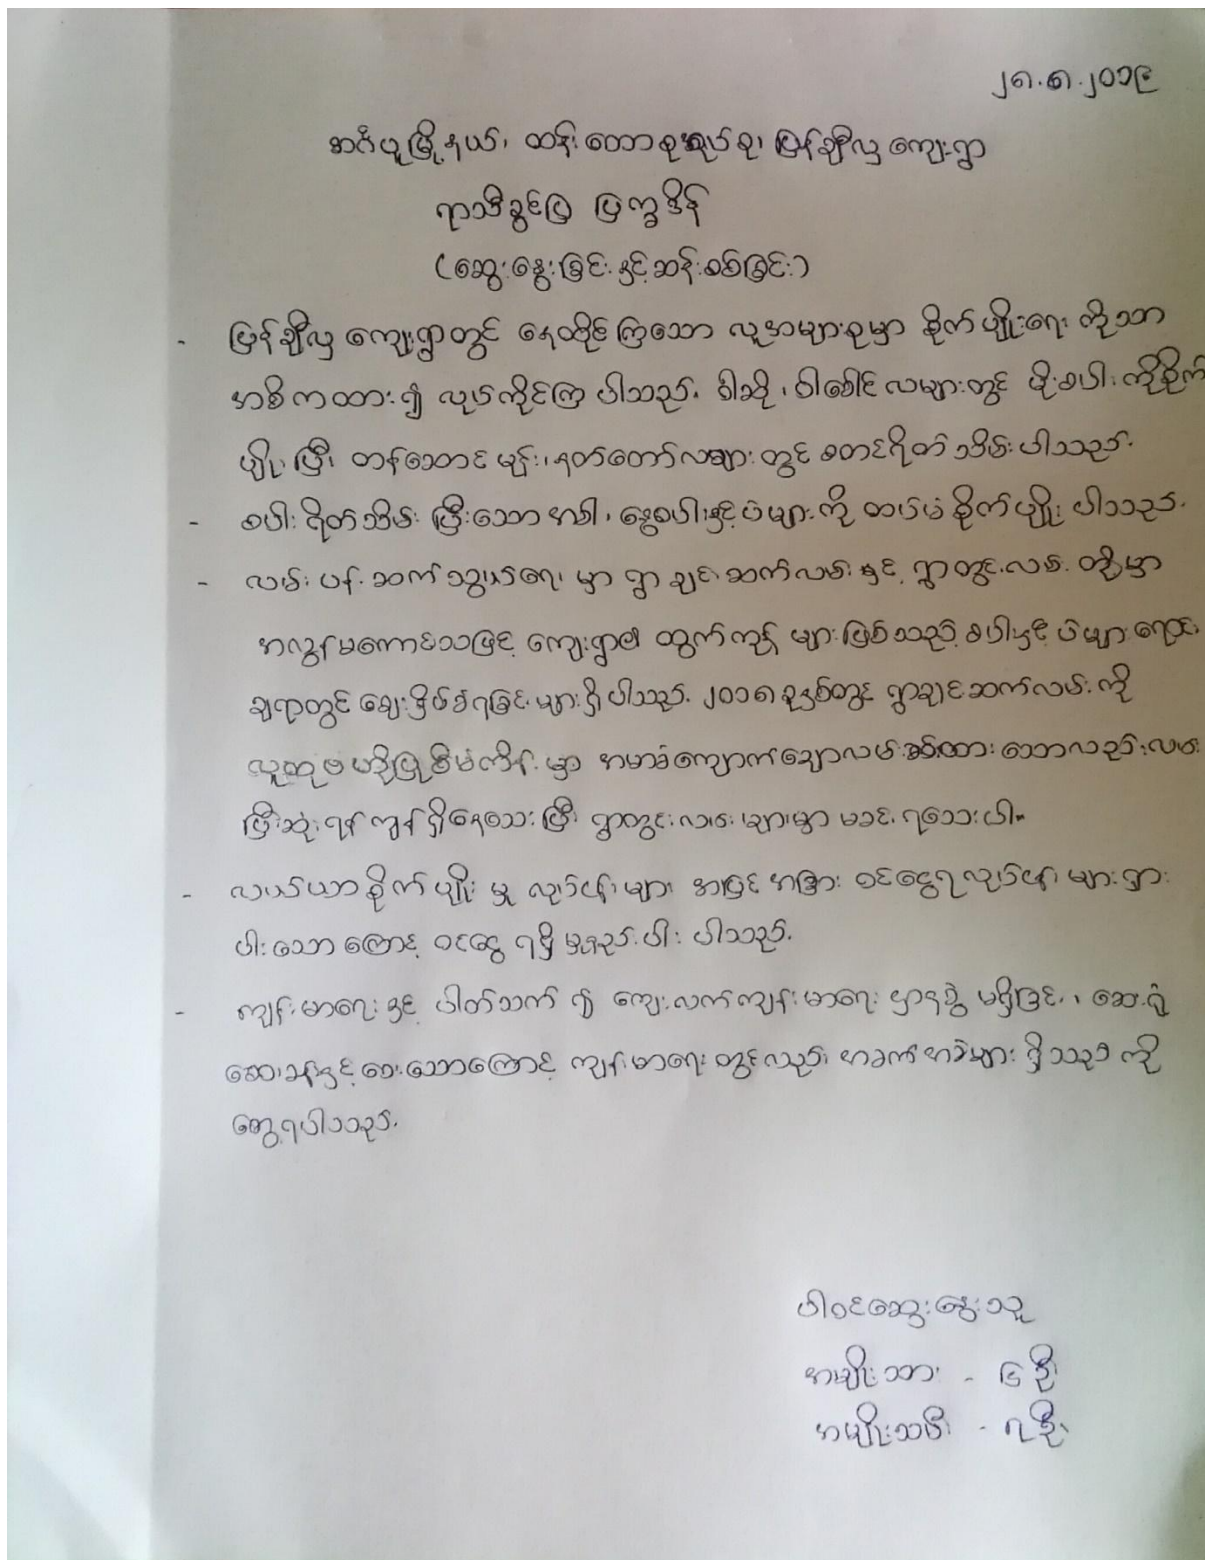 ၂၈.၈.၂၀၁၉
အင်္ဂပူမြို့နယ်၊ ထန်းတောစုအုပ်စု၊ ပြန်ချီလှ ကျေးရွာ
ရာသီခွင်ပြ ပြက္ခဒိန်
(ဆွေးနွေးခြင်းနှင့်ဆန်းစစ်ခြင်း)
- ပြန်ချီလှ ကျေးရွာတွင် နေထိုင်ကြသော လူအများစုမှာ စိုက်ပျိုးရေး ကိုသာ
အဓိကထား၍ လုပ်ကိုင်ကြ ပါသည်။ ဝါဆို၊ ဝါခေါင် လများတွင် မိုးစပါး ကိုစိုက်
ပျိုး ပြီး တန်ဆောင်မုန်း၊ နတ်တော်လများ တွင် စတင်ရိတ်သိမ်းပါသည်။
- စပါး ရိတ်သိမ်း ပြီးသော အခါ၊ နွေစပါးနှင့်ပဲများကို ထပ်မံစိုက်ပျိုး ပါသည်။
- လမ်းပန်းဆက်သွယ်ရေး မှာ ရွာချင်းဆက်လမ်းနှင့် ရွာတွင်းလမ်း တို့မှာ
အလွန်မကောင်းသဖြင့် ကျေးရွာ၏ ထွက်ကုန် များဖြစ်သည့် စပါးနှင့် ပဲများရောင်း
ချရာတွင် ဈေးနှိမ်ခံရခြင်းများရှိပါသည်။ ၂၀၁၈ ခုနှစ်တွင် ရွာချင်းဆက်လမ်းကို
လူထုဗဟိုပြုစီမံကိန်း မှာ အမာခံကျောက်ချောလမ်းခင်းထား သော်လည်း လမ်း
ပြီးဆုံးရန် ကျန်ရှိနေသေး ပြီး ရွာတွင်းလမ်းများမှာ မခင်းရသေးပါ။
- လယ်ယာစိုက်ပျိုး မှု လုပ်ငန်းများ အပြင် အခြား ဝင်ငွေရလုပ်ငန်း များရှား
ပါးသော ကြောင့် ဝင်ငွေ ရရှိမှုနည်းပါး ပါသည်။
- ကျန်းမာရေးနှင့် ပါတ်သက် ၍ ကျေးလက်ကျန်းမာရေး ဌာနခွဲ မရှိခြင်း၊ ဆေးရုံ
ဆေးခန်းနှင့်ဝေးသောကြောင့် ကျန်းမာရေးတွင်လည်း အခက်အခဲများ ရှိသည် ကို
တွေ့ရပါသည်။
ပါဝင်ဆွေးနွေးသူ
အမျိုးသား - ၆ ဦး
အမျိုးသမီး - ၇ ဦး